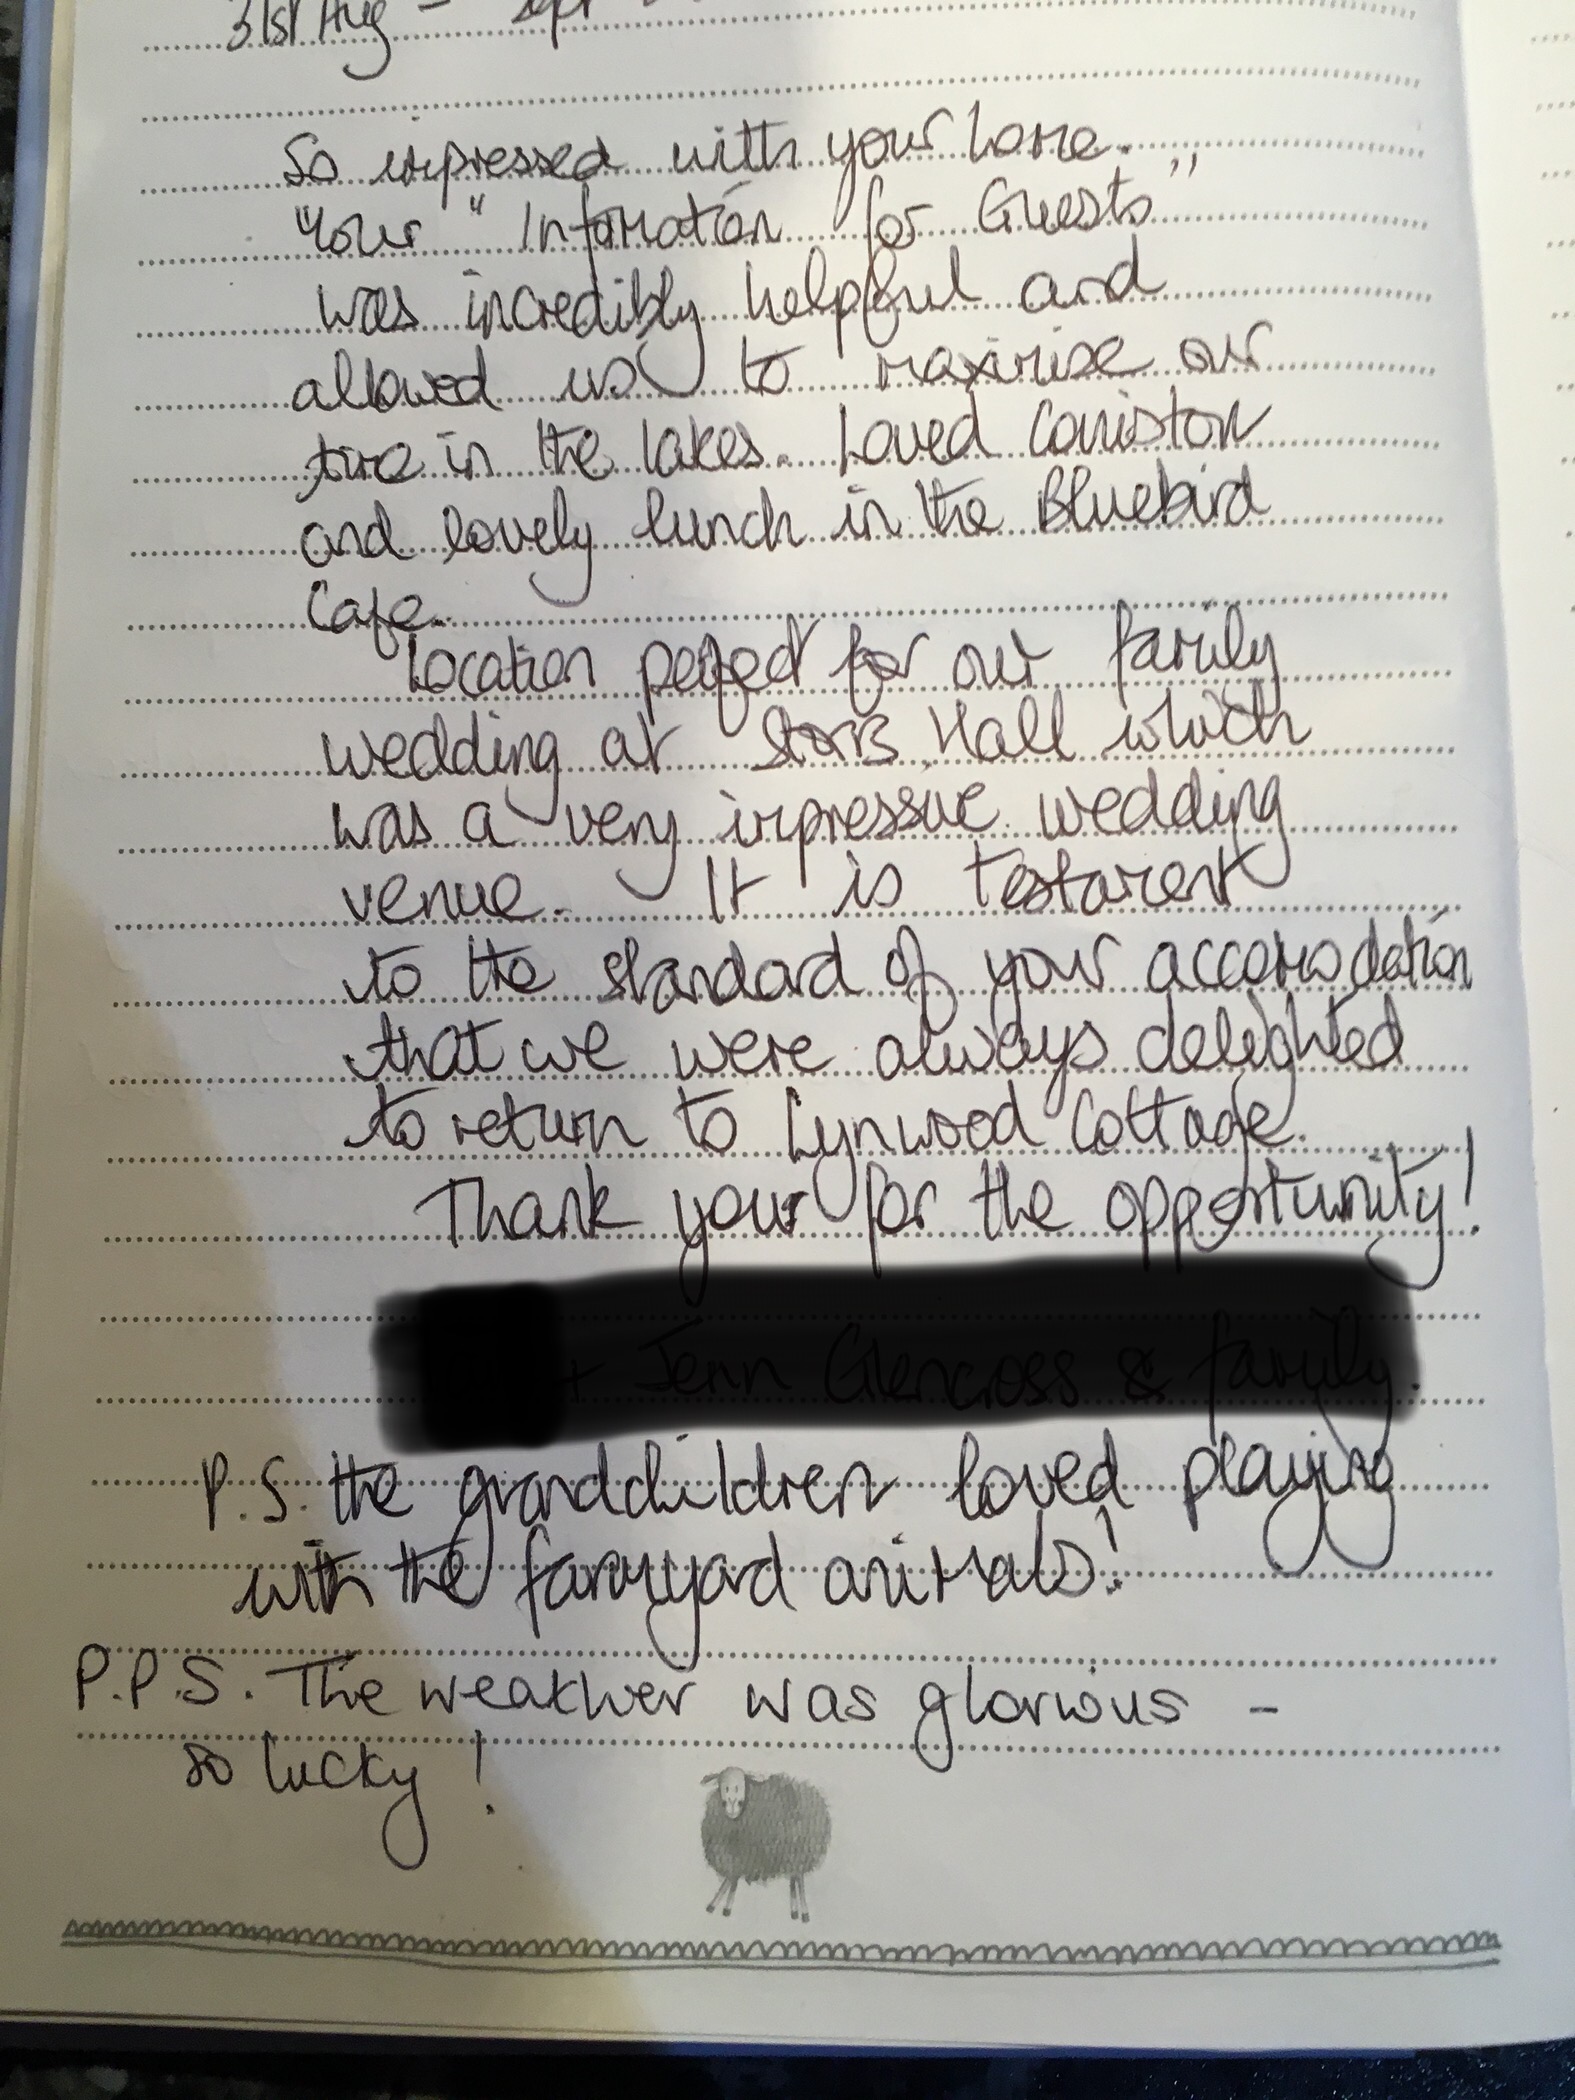 31st Aug –
So impressed with your home.
"Your "Information for Guests"
was incredibly helpful and
allowed us to maximise our
time in the lakes. Loved Coniston
and lovely lunch in the Bluebird
Cafe.
Location perfect for our family
wedding at Storrs Hall which
was a very impressive wedding
venue. It is testament
to the standard of your accomodation
that we were always delighted
to return to Lynwood Cottage.
Thank your for the opportunity!
P.S. the grandchildren loved playing
with the farmyard animals!
P.P.S. The weather was glorious –
so lucky!